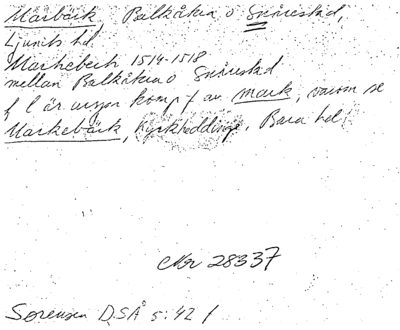 Marbäck Balkåkra o Snårestad,
Ljunits hd.
Marhebeck 1514-1518
mellan Balkåkra o Snårestad
f l är urspr komp f av mark, varom se
Markebäck, Kyrkheddinge, Bara hd.
Nr 28337
Sørensen DSÅ 5:42 f